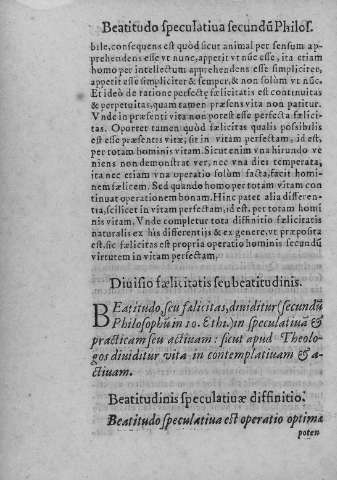 Beatitudo speculatiua secundũ Philos.
bile, consequens est quòd sicut animal per sensum ap-
prehendens esse vt nunc, appetit vt nũc esse, ita etiam
homo per intellectum apprehendens esse simpliciter,
appetit esse simpliciter & semper, & non solùm vt nũc.
Et ideò de ratione perfectę fœlicitatis est continuitas
& perpetuitas, quam tamen præsens vita non patitur.
Vnde in præsenti vita non potest esse perfecta fœlici-
tas. Oportet tamen quòd fœlicitas qualis possibilis
est esse præsentis vitæ, sit in vitam perfectam, id est,
per totam hominis vitam. Sicut enim vna hirundo ve
niens non demonstrat ver, nec vna dies temperata,
ita nec etiam vna operatio solùm facta, facit homi-
nem fœlicem. Sed quando homo per totam vitam con
tinuat operationem bonam. Hinc patet alia differen-
tia, scilicet in vitam perfectam, id est, per totam homi
nis vitam. Vnde completur tota diffinitio fœlicitatis
naturalis ex his differentijs & ex genere, vt præposita
est, sic fœlicitas est propria operatio hominis secundũ
virtutem in vitam perfectam.
Diuisio fœlicitatis seu beatitudinis.
BEatitudo, seu fœlicitas, diuiditur (secundũ
Philosophũ in 10. Ethi.) in speculatiuã &
practicam seu actiuam: sicut apud Theolo-
gos diuiditur vita in contemplatiuam & a-
ctiuam.
Beatitudinis speculatiuæ diffinitio.
Beatitudo speculatiua est operatio optima
poten